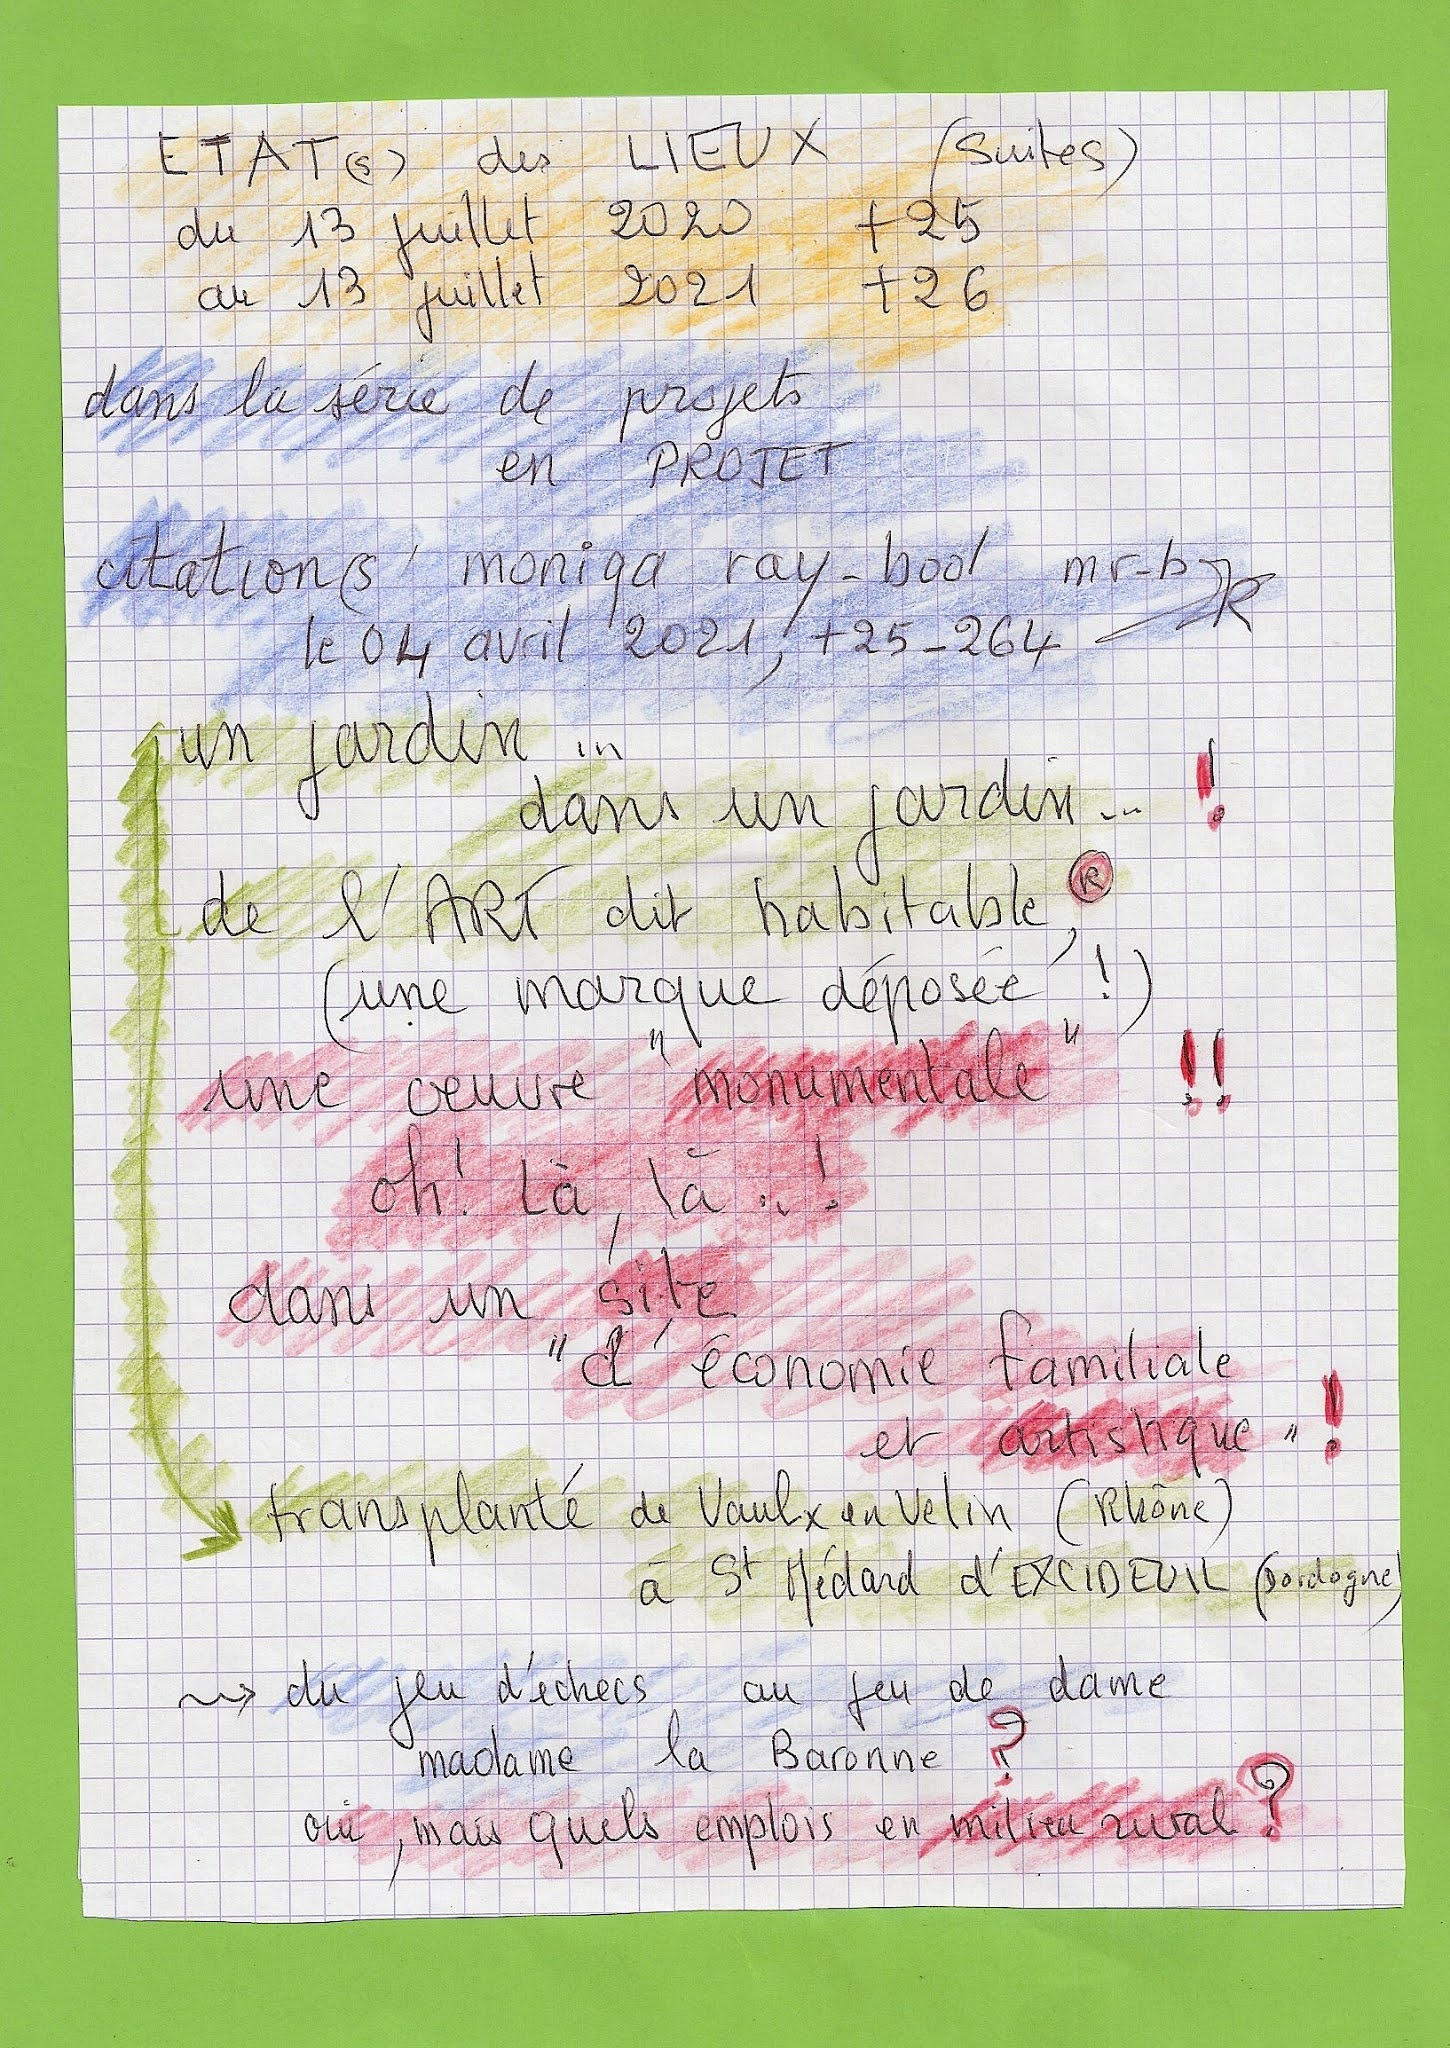 ETAT(s) des LIEUX (suites)
du 13 juillet 2020 +25
au 13 juillet 2021 +26
dans la série de projets
en PROJET
citation(s) moniqa ray-bool mr-b
le 04 avril 2021, +25-264
un jardin ...
dans un jardin ... !
de l'ART dit habitable, ®
(une marque déposée !)
une œuvre "monumentale" !!
oh! Là, là ..!
dans un site
"d'économie familiale
et artistique" !
transplanté de Vaulx en Velin (Rhône)
à St Médard d'EXCIDEUIL (Dordogne)
⇝ du jeu d'échecs au jeu de dame
madame la Baronne ?
oui, mais quels emplois en milieu rural ?